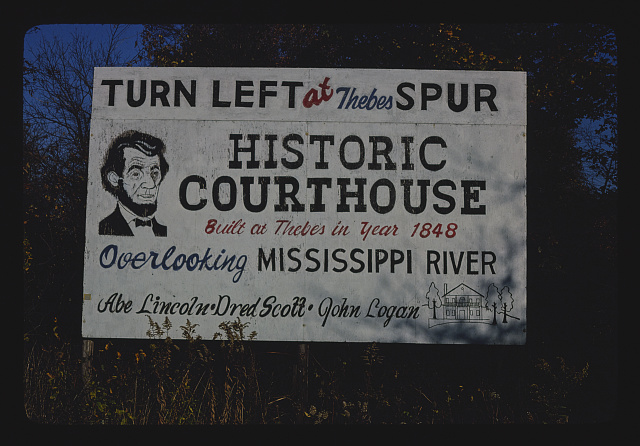 TURN LEFT at Thebes SPUR
HISTORIC
COURTHOUSE
Built at Thebes in Year 1848
Overlooking MISSISSIPPI RIVER
Abe Lincoln • Dred Scott • John Logan